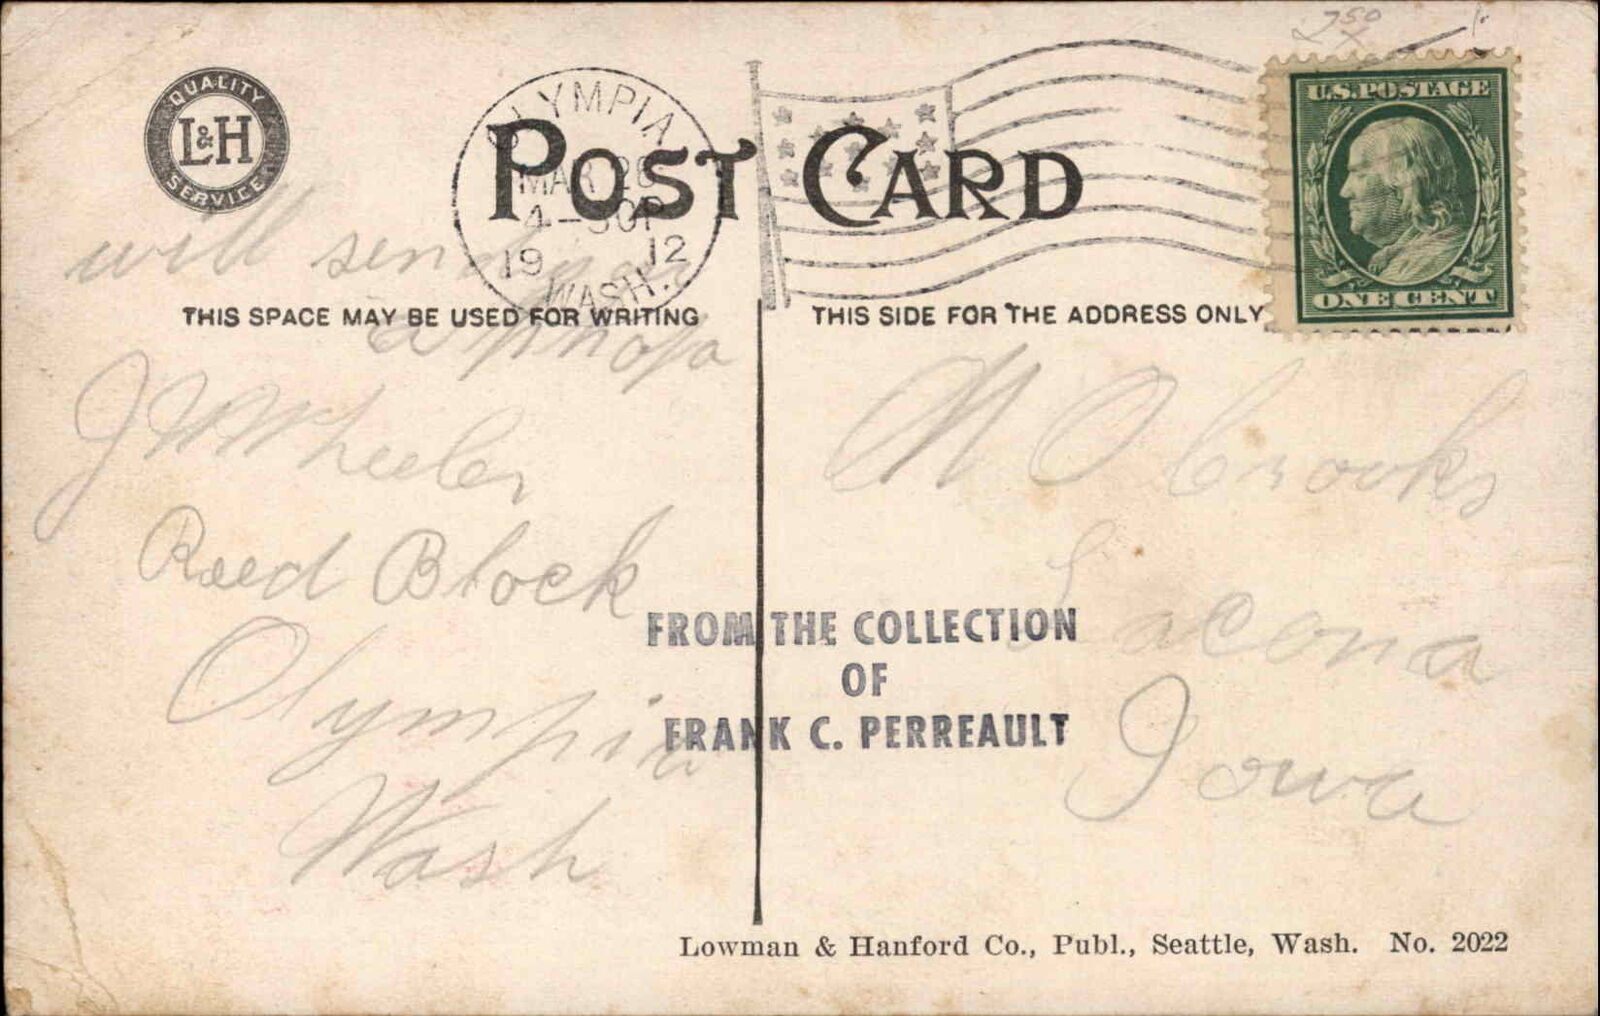 7 50
QUALITY
L&H
SERVICE
OLYMPIA
MAR 26
4-30P
19 12
WASH.
POST CARD
U.S.POSTAGE
ONE CENT
will send you
a photo
THIS SPACE MAY BE USED FOR WRITING
THIS SIDE FOR THE ADDRESS ONLY
J W Wheeler
Reed Block
Olympia
Wash
M O Crooks
Lacona
Iowa
FROM THE COLLECTION
OF
FRANK C. PERREAULT
Lowman & Hanford Co., Publ., Seattle, Wash. No. 2022